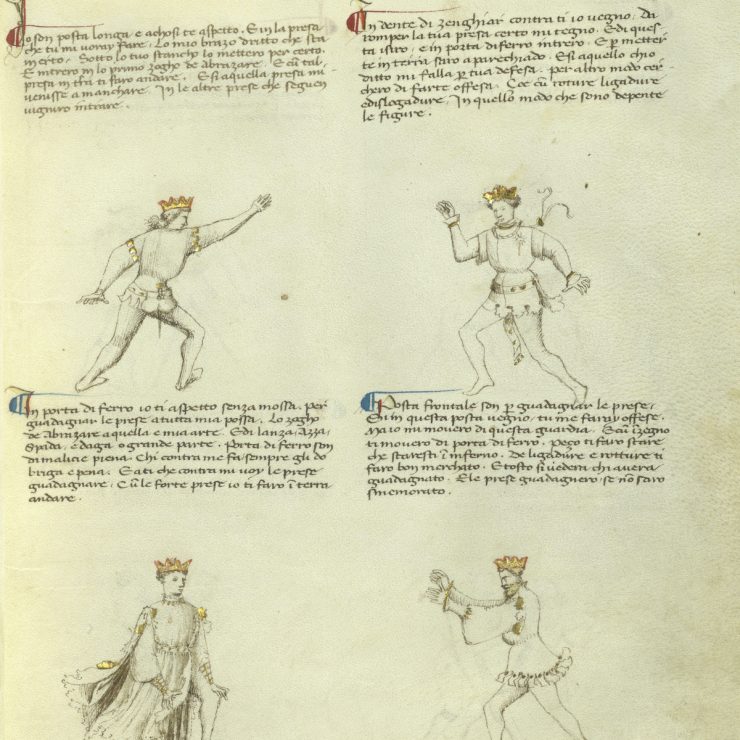 Io son posta longa e achosi te aspetto. E in la presa
che tu mi voray fare. Lo mio brazo dritto che sta
in erto. Sotto lo tuo stancho lo mettero per certo.
E intrero in lo primo zogho de abrazare. E cum tal
presa in terra ti faro andare. E si aquella presa mi
venisse a manchare. In le altre prese che seguen
vigniro intrare.
In dente di zenghiar contra ti io vegno. Da
romper la tua presa certo mi tegno. E di ques
ta isiro, e in porta di ferro intrero. E per metter
te in terra saro aparechiado. E si aquello ch'io
ditto mi falla per tua defesa. Per altro modo cer
chero di farte offesa. Çoe cum roture ligadure
e dislogadure. In quello modo che sono depente
le figure.
In porta di ferro io ti aspetto senza mossa. Per
guadagniar le prese a tutta mia possa. Lo zogho
de Abrazare aquella e mia arte. E di lanza, Azza,
Spada, e daga, o grande parte. Porta di ferro son
di malicie piena. Chi contra me fa sempre gli do
briga e pena. E a ti che contra mi voy le prese
guadagnare. Cum le forte prese io ti faro in terra
andare.
Posta frontale son per guadagniar le prese.
Si in questa posta vegno, tu me faray offese.
Ma io mi movero di questa guardia. E cum inzegno
ti movero di porta di ferro. Peço ti faro stare
che staresti in inferno. De ligadure e rotture ti
faro bon merchato. E tosto si vedera chi avera
guadagnato. E le prese guadagnero se non saro
smemorato.